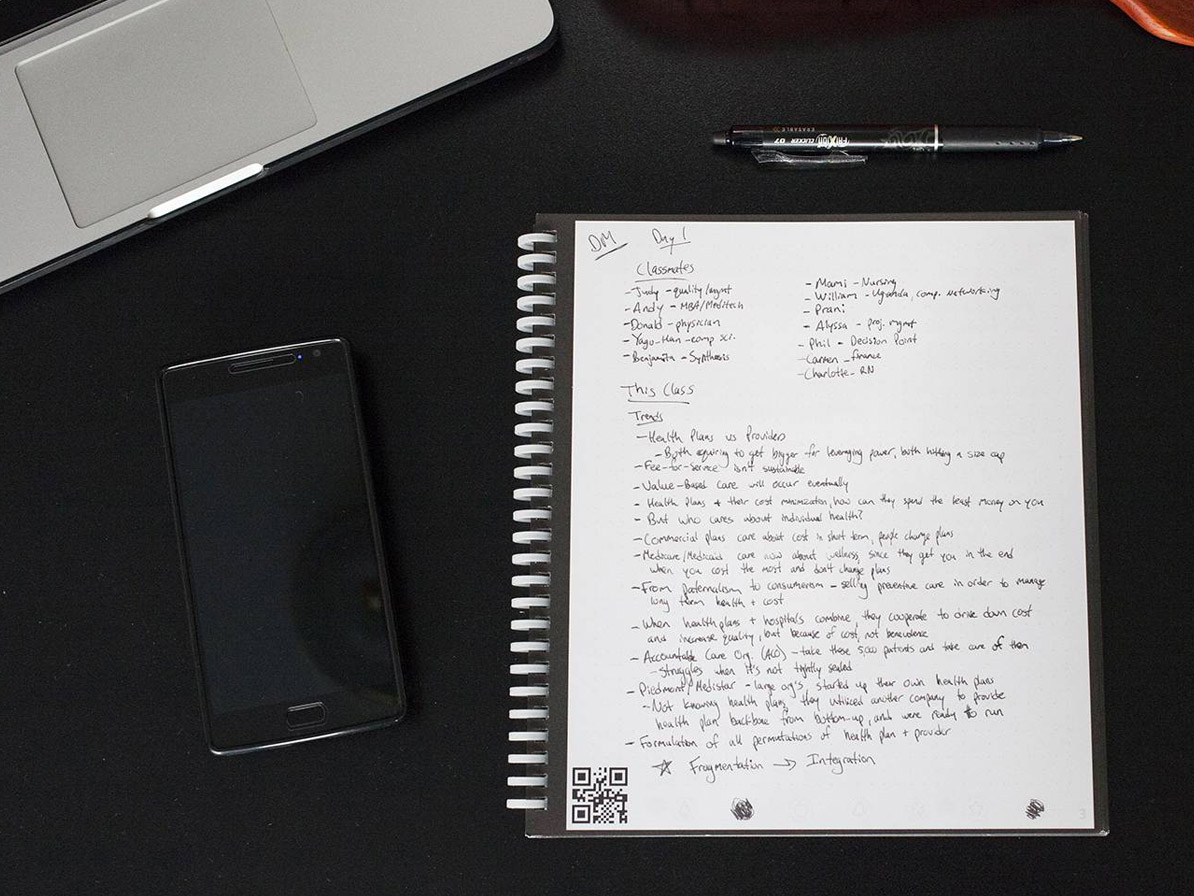 FRIXION CLICKER 07
ERASABLE
DM Day 1
Classmates
- Judy - quality/mgmt
- Andy - MBA/Meditech
- Donald - physician
- Yago-Han - comp sci.
- Benjamita - Synthesis
- Mami - Nursing
- William - Uganda, comp. networking
- Prani
- Alyssa - proj. mgmt
- Phil - Decision Point
- Carmen - finance
- Charlotte - RN
This Class
Trends
- Health Plans vs Providers
- Both aquiring to get bigger for leveraging power, both hitting a size cap
- Fee-for-Service isn't sustainable
- Value-Based care will occur eventually
- Health Plans + their cost minimization, how can they spend the least money on you
- But who cares about individual health?
- Commercial plans care about cost in short term, people change plans
- Medicare/Medicaid care now about wellness, since they get you in the end
when you cost the most and don't change plans
- From paternalism to consumerism - selling preventive care in order to manage
long term health + cost
- When health plans + hospitals combine, they cooperate to drive down cost
and increase quality, but because of cost, not benevolence
- Accountable Care Org. (ACO) - take these 5,000 patients and take care of them
- struggles when it's not tightly sealed
- Piedmont/Medistar - large org's, started up their own health plans
- Not knowing health plans, they utilized another company to provide
health plan backbone from bottom-up, and were ready to run
- Formulation of all permutations of health plan + provider
☆ Fragmentation → Integration
3